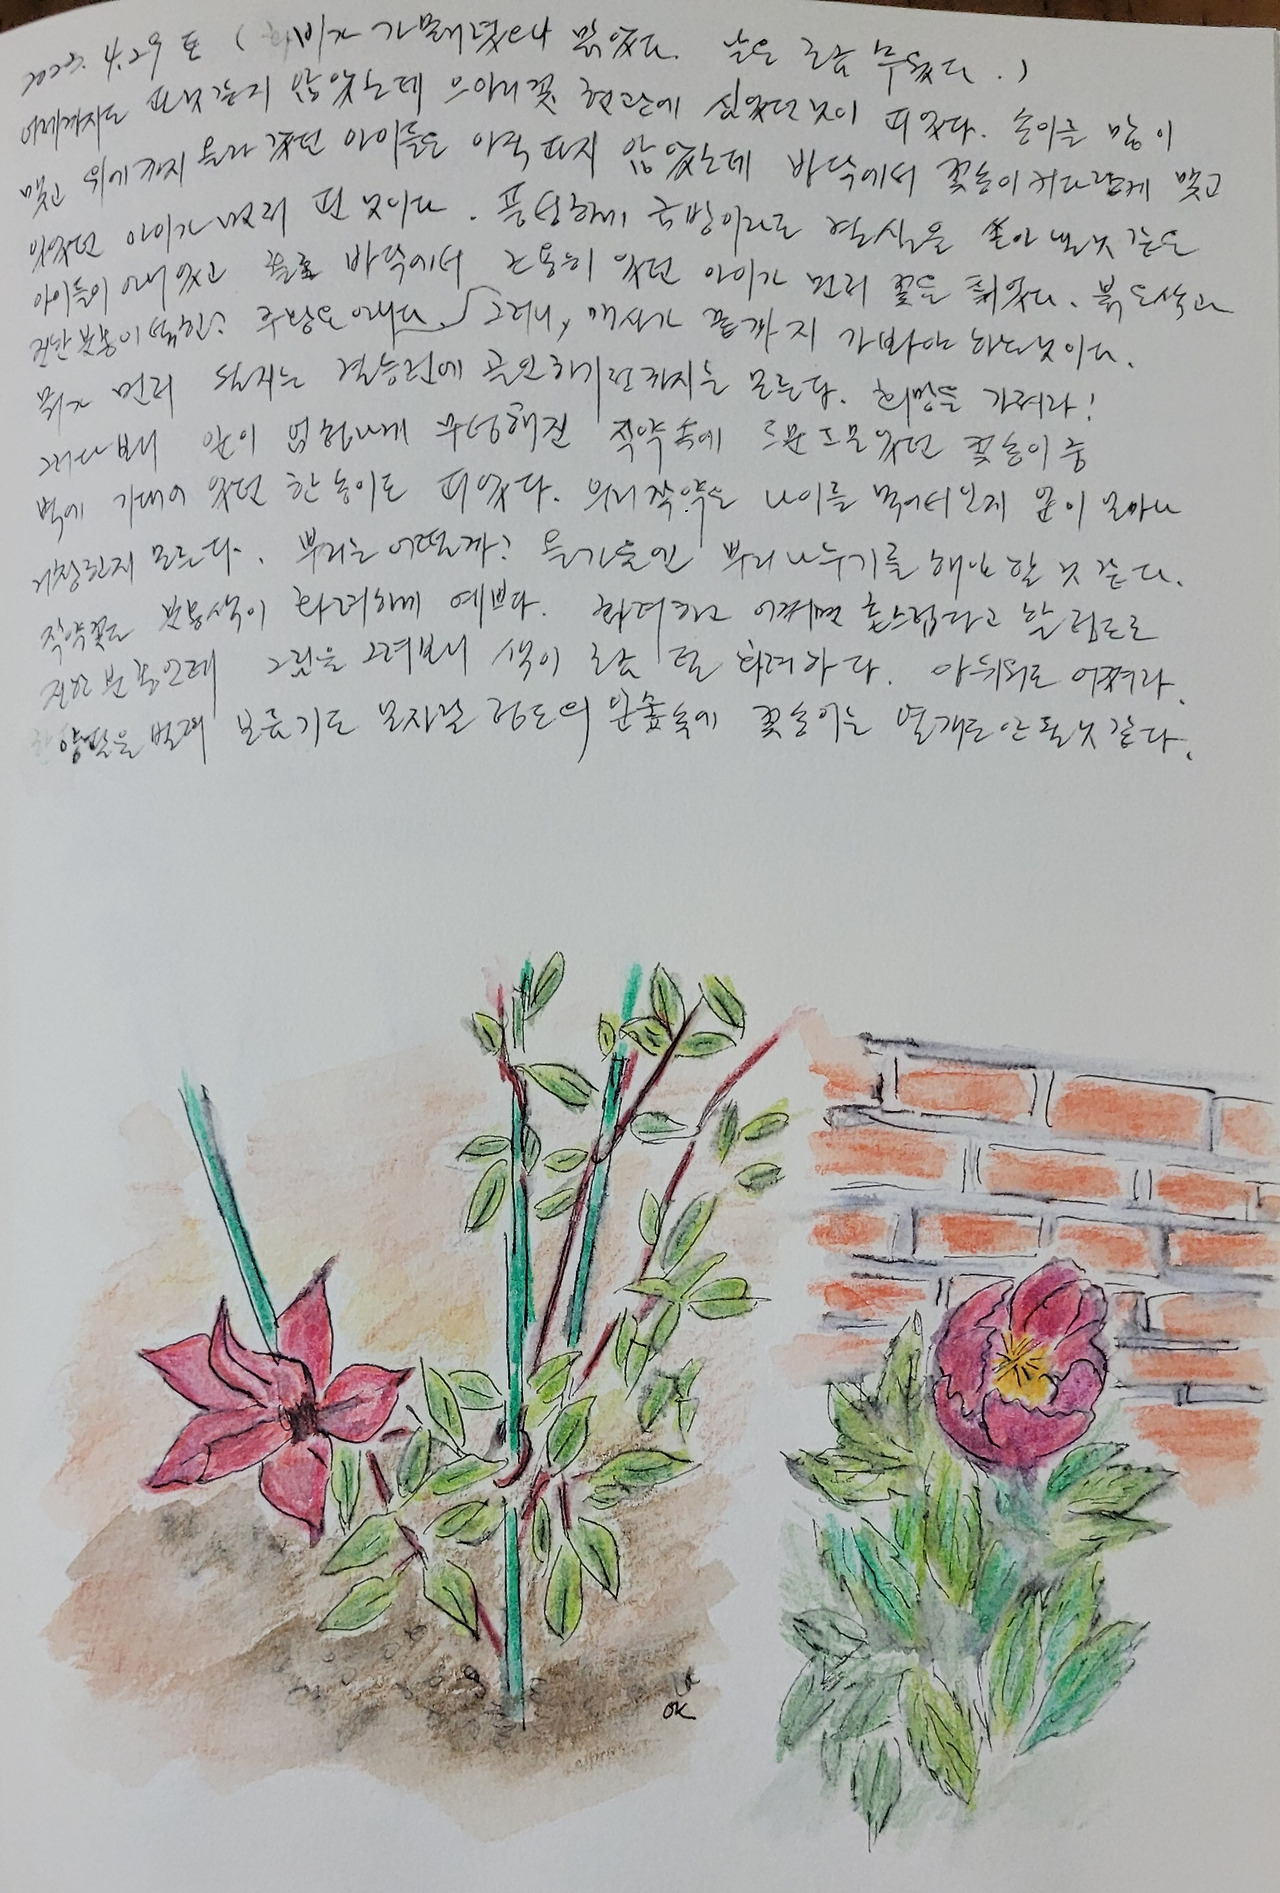 2023. 4.29 토 ( 비가 가물에 났으나 맑았다. 날은 조금 무웠다.)
어제까지도 피지 않았는데 으아리꽃 현관에 심었던 것이 피었다. 송이를 많이
맺고 위에까지 올라 갔던 아이들은 아직 피지 않았는데 바닥에서 꽃송이 커다랗게 맺고
있었던 아이가 먼저 핀 것이다. 풍성하게 금방이라도 결실을 쏟아 낼 것 같은
아이들이 아니었고 바닥에서 조용히 있던 아이가 먼저 꽃을 틔었다. 붉은색과
진한 분홍이 섞인? 주황도 아니다. 그러니, 매사가 끝까지 가봐야 하는 것이다.
뭐가 먼저 되지는 결승전에 골인하기 전까지는 모른다. 희망을 가져라!
그러다 보니 잎이 엄청나게 무성해진 작약 속에 드문드문 있었던 꽃송이 중
벽에 기대어 있던 한 송이도 피었다. 우리 작약은 나이를 먹어서인지 잎이 얼마나
거창한지 모른다. 뿌리는 어떨까? 올가을엔 뿌리 나누기를 해야 할 것 같다.
작약꽃은 분홍색이 화려하게 예쁘다. 화려하고 어쩌면 촌스럽다고 할 정도로
진한 분홍인데 그림을 그려보니 색이 조금 덜 화려하다. 아쉬워도 어쩌랴.
양팔을 벌려 보듬기도 모자랄 정도의 잎숲 속에 꽃송이는 열 개도 안 될 것 같다.
OK